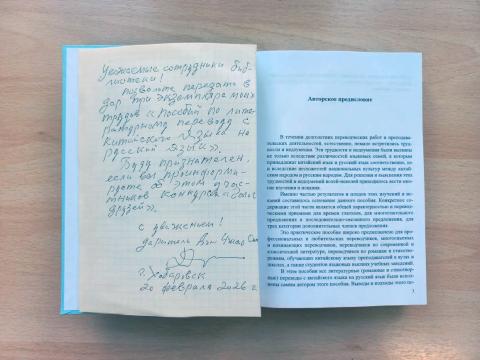 Уважаемые сотрудники биб-
лиотеки!
позвольте передать в
дар три экземпляра моих
трудов «Пособий по лите-
ратурному переводу с
китайского языка на
русский язык».
Буду признателен,
если вы проинформи-
руете об этом участ-
ников конкурса
друзей».
с уважением!
даритель Вэн
г. Хабаровск
20 февраля 2026 г.
Авторское предисловие
В течении долголетних переводческих работ и преподава-
тельских деятельностей, естественно, немало встретились трудно-
стей и недоумения. Эти трудности и недоумения были вызваны
не только вследствие различностей языковых семей, к которым
принадлежат китайский язык и русский язык соответственно, но
и вследствие несхожестей национальных культур между китай-
ским народом и русским народом. Для решения и выяснения этих
трудностей и недоумений волей-неволей приходилось вести мно-
гие изучения и искания.
Именно частью результатов и плодов этих изучений и
исканий составилось сочинение данного пособия. Конкретное
содержание этой части является общей характерностью и переводче-
скими приемами для время глаголов, для многоглагольного
предложения и последовательно-связанного предложения, для
трех категории дополнительных членов предложения.
Это практическое пособие широко предназначено для про-
фессиональных и любительных переводчиков, многоопытных
и начинающих переводчиков, переводчиков по современной и
классической литературе, переводчиков по романам и стихотво-
рениям, обучающих китайскому языку преподавателей в вузах и
школах, а также студентов языковых высших учебных заведений.
В этом пособии все литературные (романные и стихотвор-
ные) переводы с китайского языка на русский язык были испол-
нены самим автором этого пособия. Выводы и подходы этого по-
3